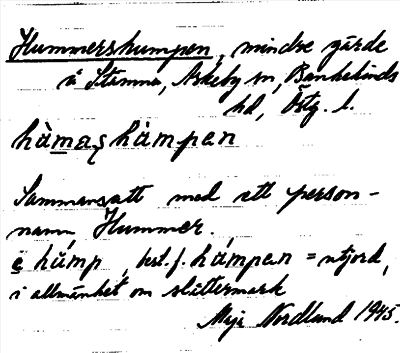 Hummershumpen, mindre gärde
i Stämma, Askeby sn, Bankekinds
hd, Östg. l.
hàmaʂhàmpen
Sammansatt med ett person-
namn Hummer.
hámp, best. f. hámpen = utjord,
i allmänhet om slåttermark
Nordlund 1945.